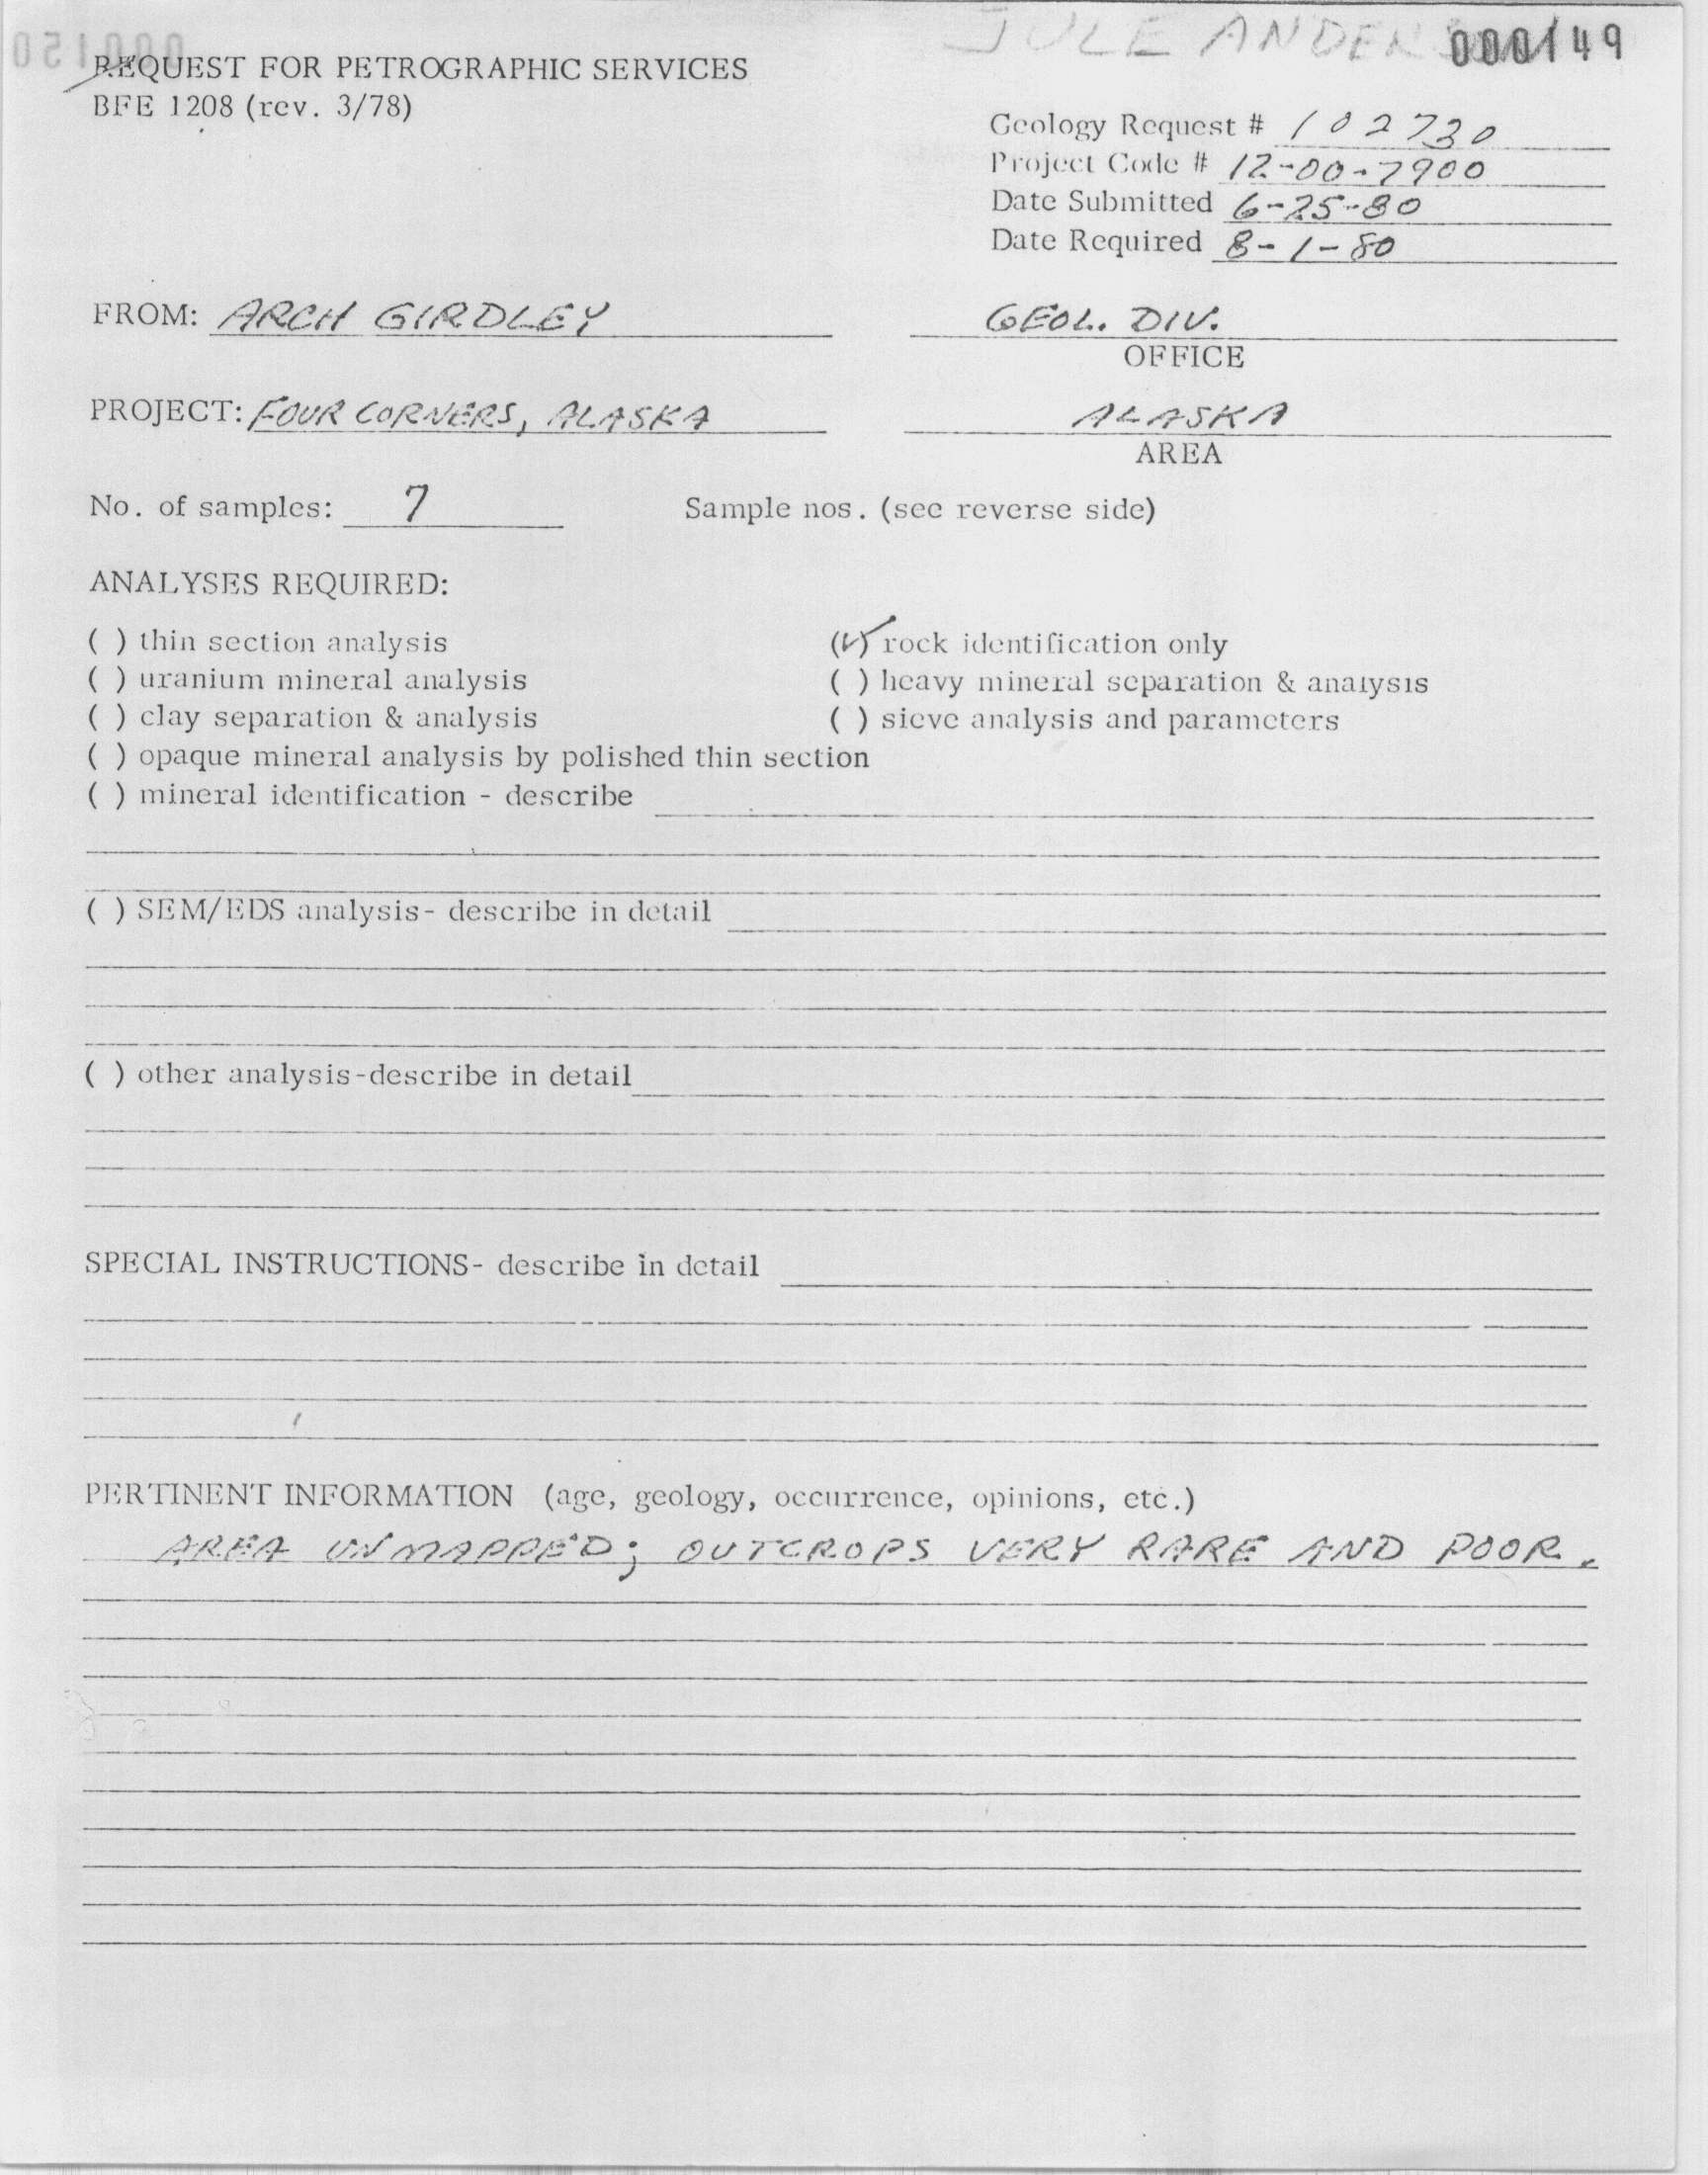 JULE ANDER 000149
REQUEST FOR PETROGRAPHIC SERVICES
BFE 1208 (rev. 3/78)
Geology Request # 102730
Project Code # 12-00-7900
Date Submitted 6-25-80
Date Required 8-1-80
FROM: ARCH GIRDLEY GEOL. DIV.
OFFICE
PROJECT: FOUR CORNERS, ALASKA ALASKA
AREA
No. of samples: 7 Sample nos. (see reverse side)
ANALYSES REQUIRED:
( ) thin section analysis (✓) rock identification only
( ) uranium mineral analysis ( ) heavy mineral separation & analysis
( ) clay separation & analysis ( ) sieve analysis and parameters
( ) opaque mineral analysis by polished thin section
( ) mineral identification - describe
( ) SEM/EDS analysis- describe in detail
( ) other analysis-describe in detail
SPECIAL INSTRUCTIONS- describe in detail
PERTINENT INFORMATION (age, geology, occurrence, opinions, etc.)
AREA UNMAPPED; OUTCROPS VERY RARE AND POOR.